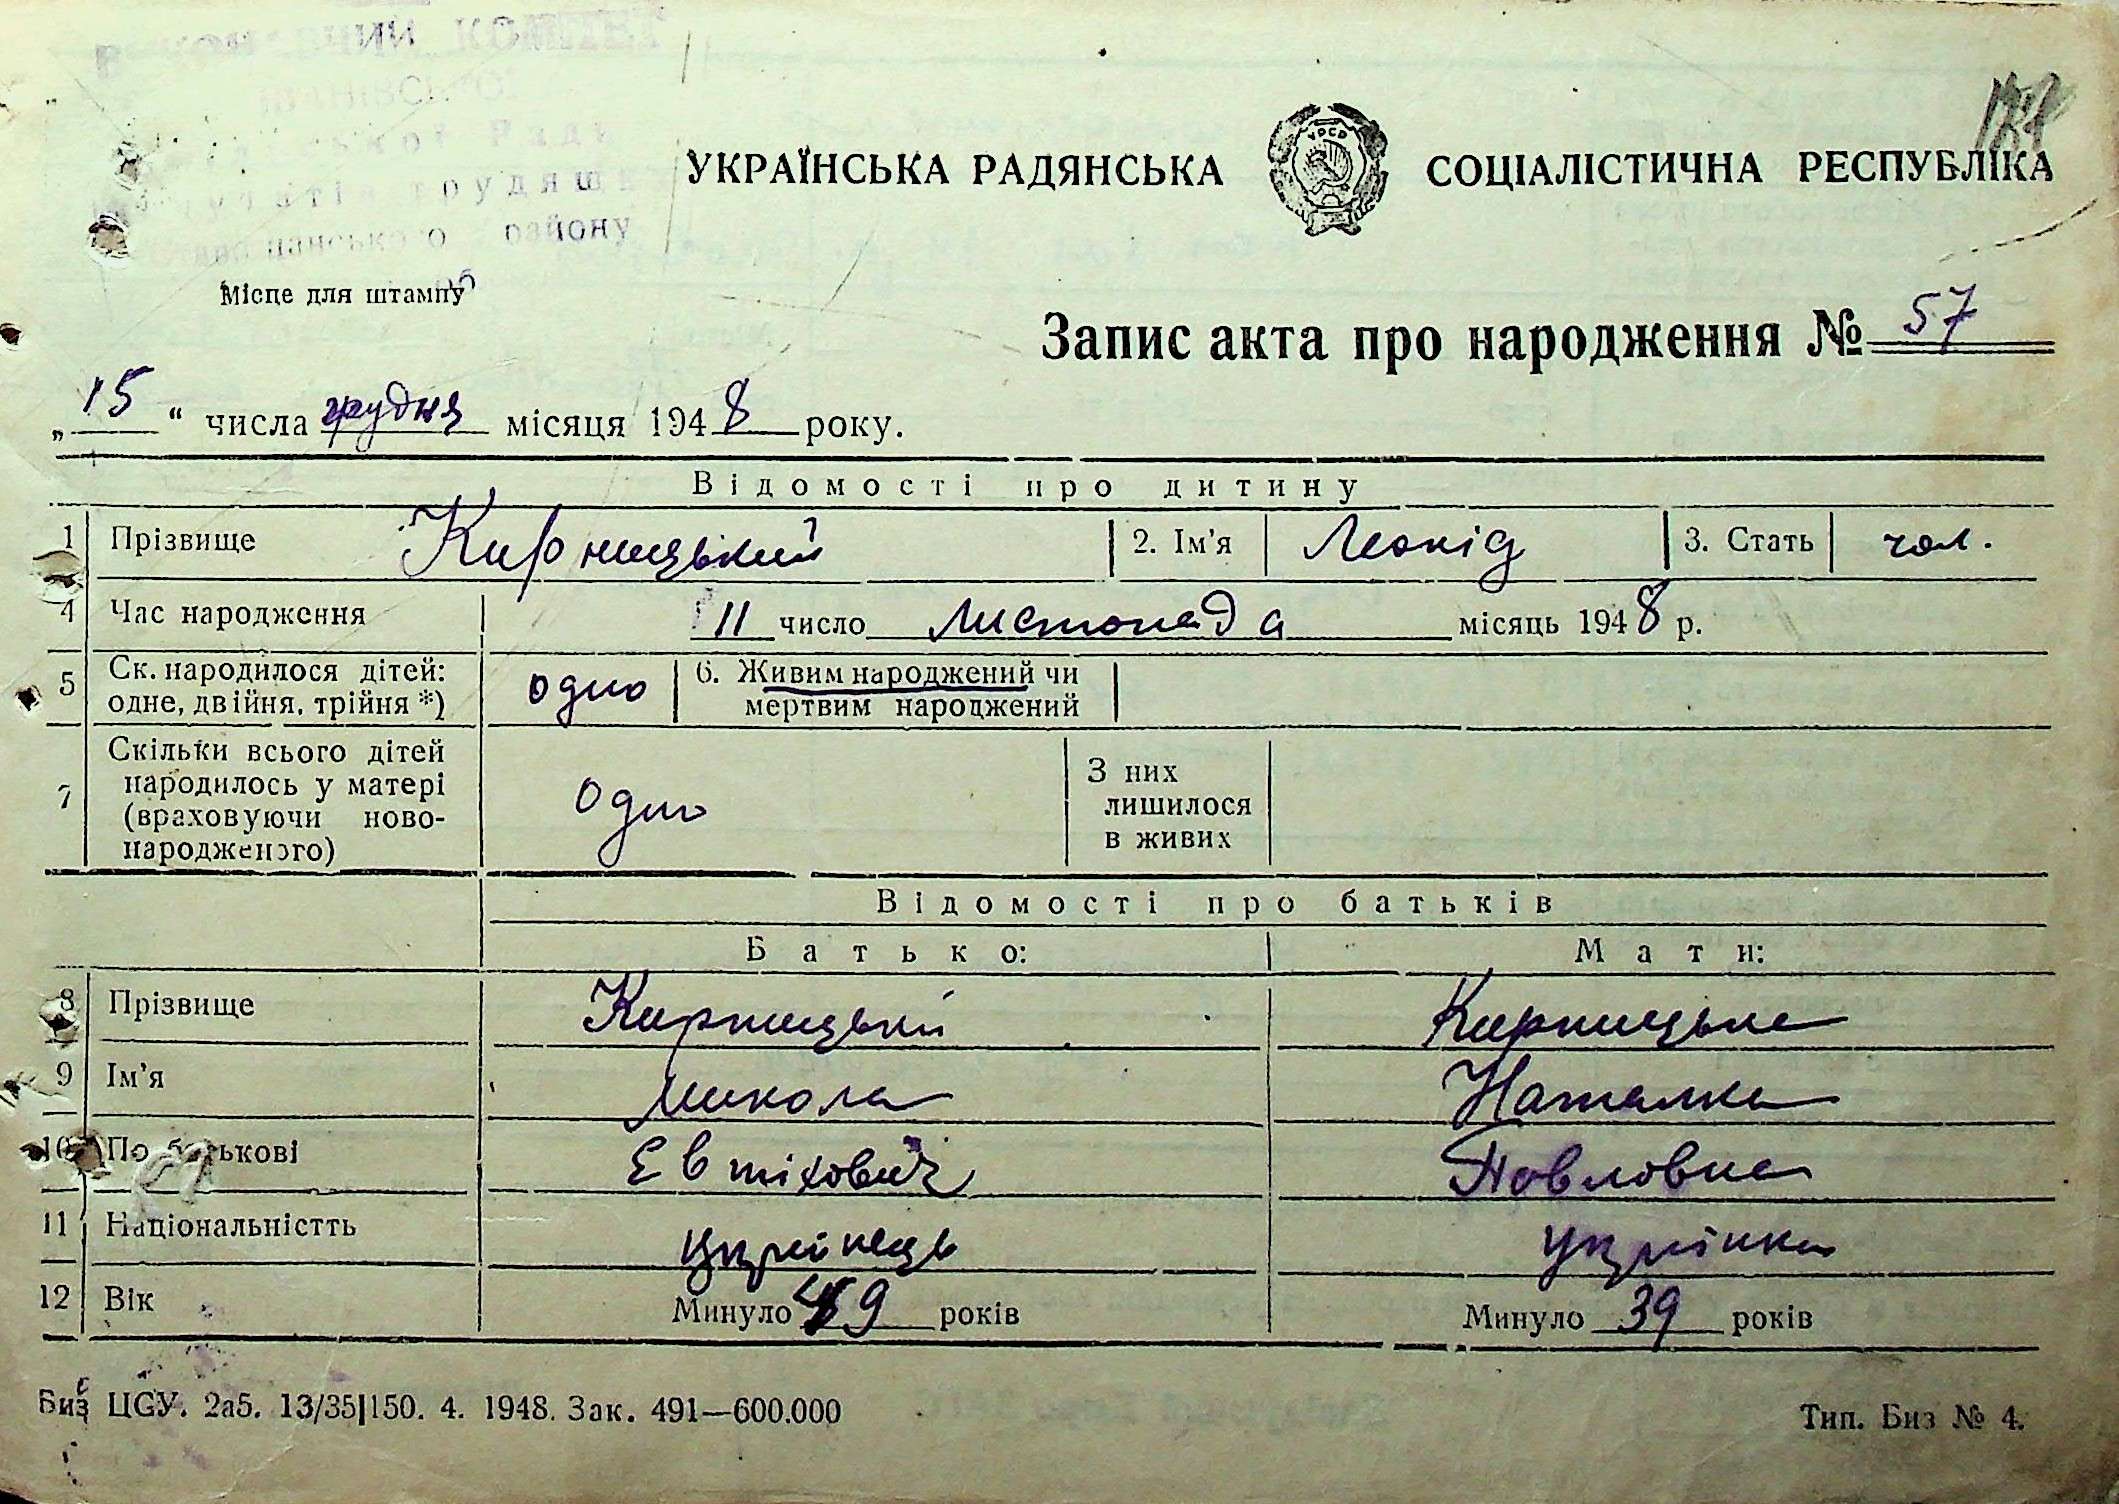 КОМІТЕТ
району
УКРАЇНСЬКА РАДЯНСЬКА СОЦІАЛІСТИЧНА РЕСПУБЛІКА
УРСР
Місце для штампу
Запис акта про народження № 57
„ 15 “ числа грудня місяця 1948 року.
Відомості про дитину
1 Прізвище Кирницький 2. Ім'я Леонід 3. Стать чол.
4 Час народження 11 число листопада місяць 1948 р.
5 Ск. народилося дітей: одне, двійня, трійня *) одно 6. Живим народжений чи мертвим народжений
7 Скільки всього дітей народилось у матері (враховуючи новонародженого) одно З них лишилося в живих
Відомості про батьків
Батько: Мати:
8 Прізвище Кирницький Кирницька
9 Ім'я Микола Наталка
10 По батькові Евтіхович Павловна
11 Національністть
12 Вік Минуло 49 років Минуло 39 років
Биз ЦСУ. 2а5. 13/35|150. 4. 1948. Зак. 491—600.000
Тип. Биз № 4.